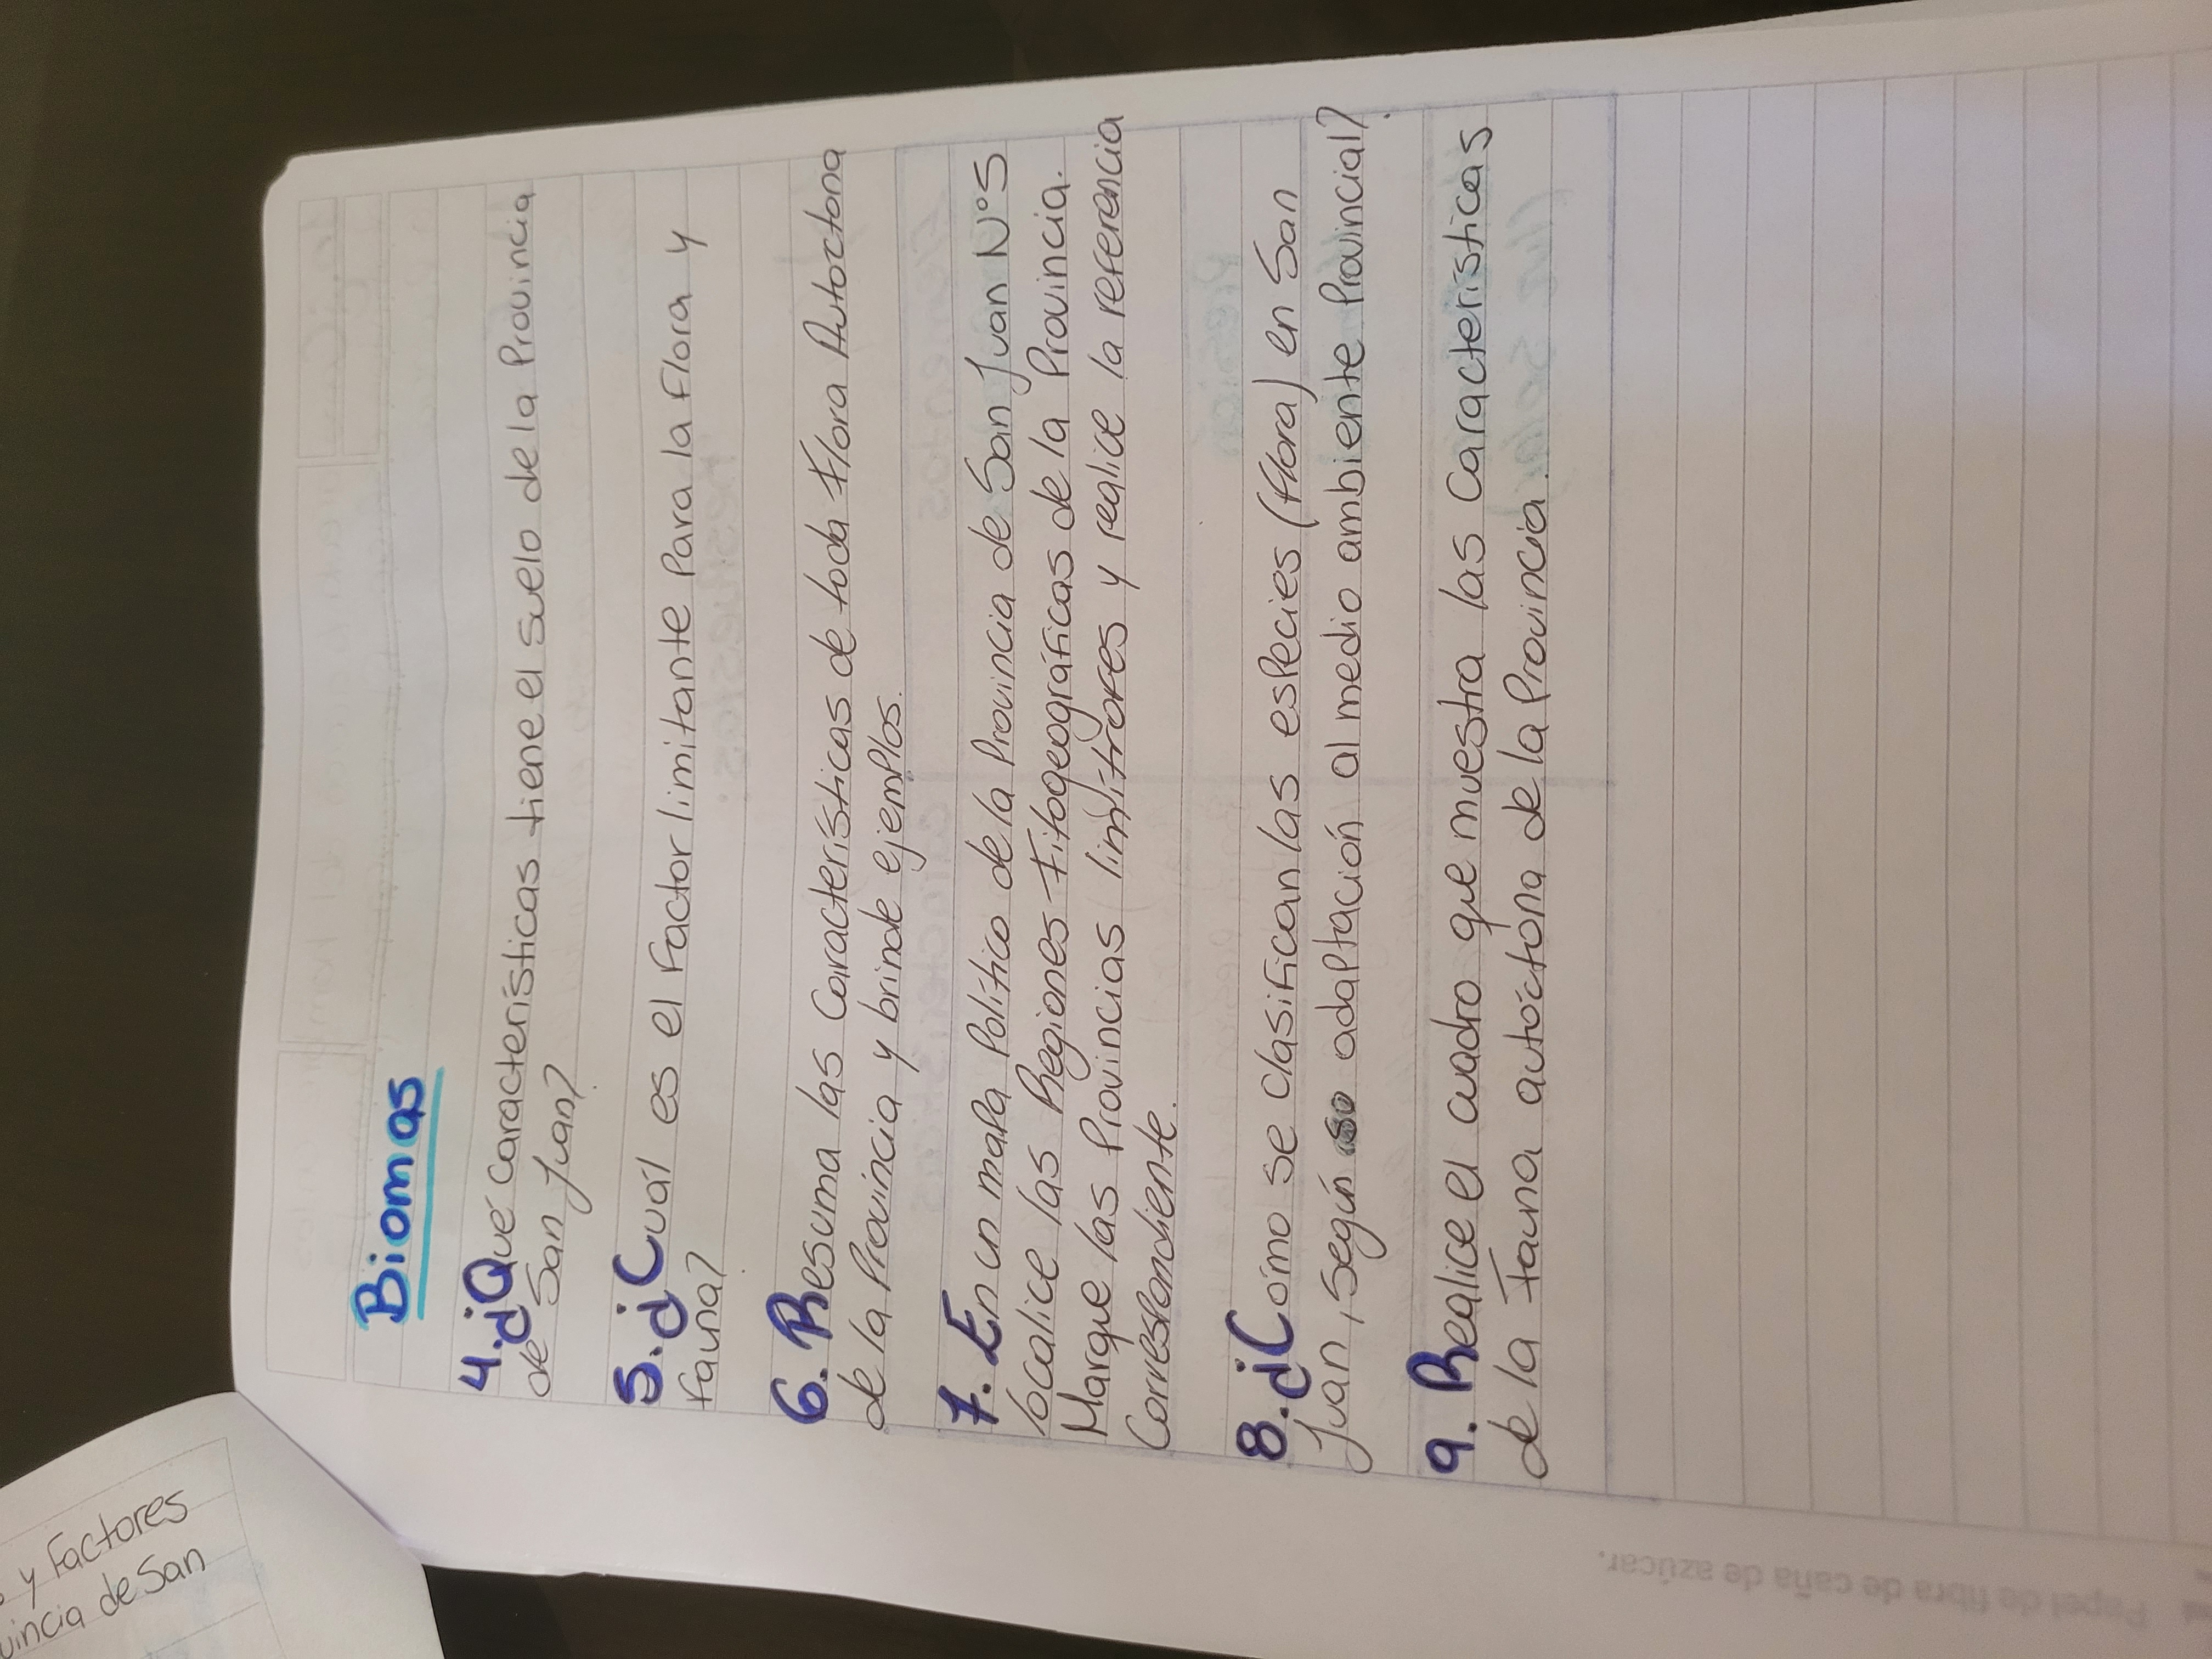 Biomas
4. ¿Qué características tiene el suelo de la Provincia
de San Juan?
5. ¿Cuál es el Factor limitante Para la Flora y
Fauna?
6. Resuma las Características de toda Flora Autoctona
de la Provincia y brinde ejemplos.
7. En un mapa Político de la Provincia de San Juan N°5
localice las Regiones Fitogeográficas de la Provincia.
Marque las Provincias limítrofes y realice la referencia
Correspondiente.
8. ¿Cómo se clasifican las especies (flora) en San
Juan, según su adaptación al medio ambiente Provincial?
9. Realice el cuadro que muestra las Características
de la Fauna autóctona de la Provincia.
y Factores
uincia de San
Papel de fibra de caña de azúcar.